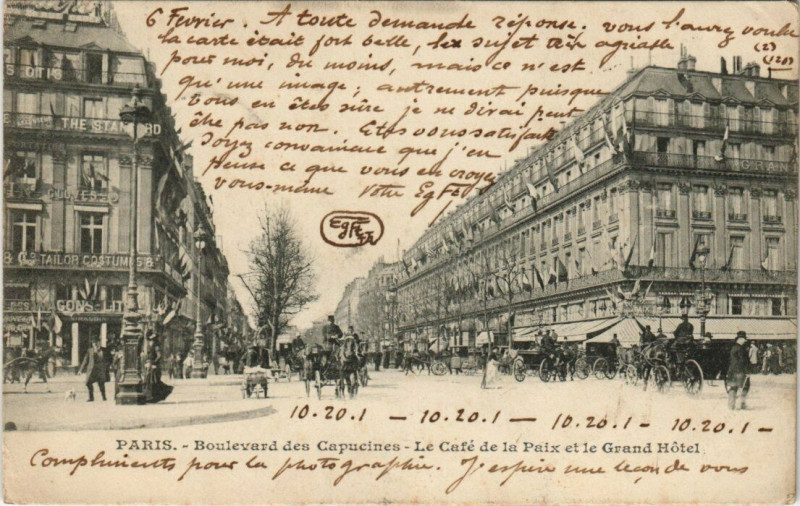 6 Fevrier. A toute demande réponse. vous l'aurez voulu
la carte était fort belle, le sujet très agréable
(2)
(120)
pour moi, du moins, mais ce n'est
qu'une image; autrement puisque
vous en êtes sûre je ne dirai peut
être pas non. Etes vous satisfaite
Soyez convaincue que j'en
pense ce que vous en croyez
vous-même votre
THE STANDARD
TAILOR COSTUMES
GRA
10.20.1 — 10.20.1 — 10.20.1 - 10.20.1 -
PARIS. - Boulevard des Capucines - Le Café de la Paix et le Grand Hôtel
Compliments pour la photographie. J'espère une leçon de vous